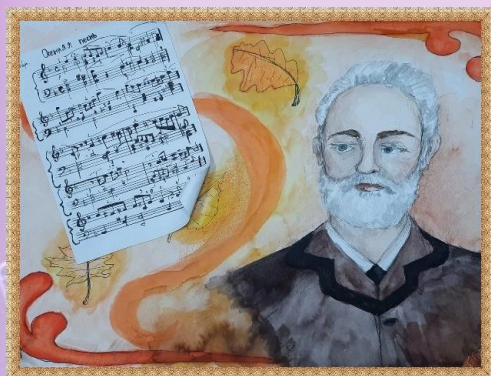 Осенняя песнь